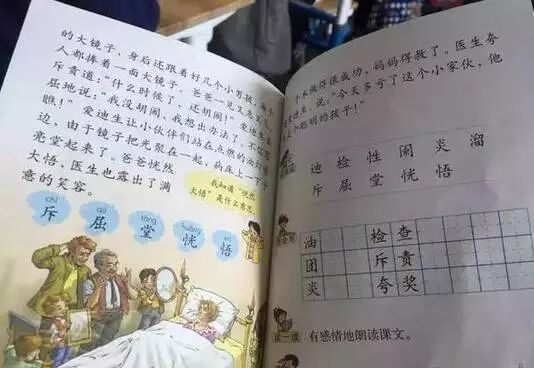 的大镜子，身后还跟着好几个小男孩，每个
人都捧着一面大镜子。爸爸一见又急又气，
斥责道："什么时候了，还胡闹！"爱迪生委
屈地说："我没胡闹，我想出办法了，不信您
瞧！"爱迪生让小伙伴们站在点燃的油灯旁
边，由于镜子把光聚在一起，病床上一下子
亮堂起来了。爸爸恍然
大悟，医生也露出了满
意的笑容。
我知道"恍然
大悟"是什么意思
chì qū táng huǎng wù
斥 屈 堂 恍 悟
手术做得很成功，妈妈得救了。医生夸
说："今天多亏了这个小家伙，他
聪明的孩子！"
迪 检 性 闹 炎 溜
斥 屈 堂 恍 悟
油 检 查
团 斥 责
炎 夸 奖
读一读
有感情地朗读课文。